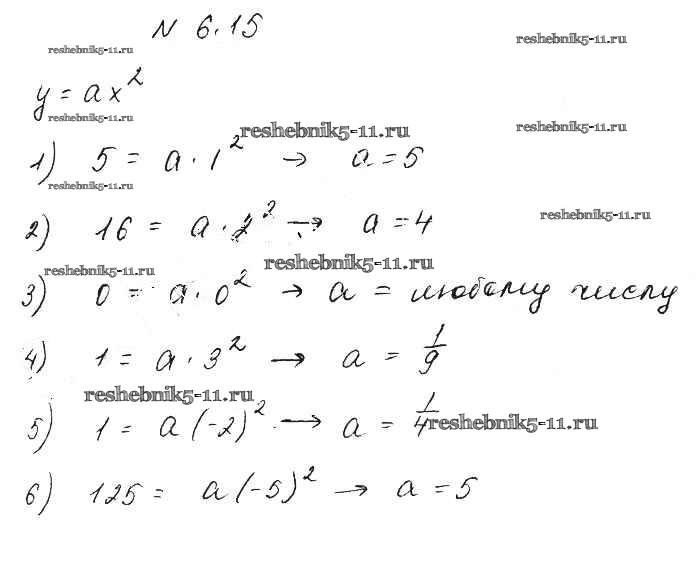 N 6.15
reshebnik5-11.ru
reshebnik5-11.ru
y = ax²
reshebnik5-11.ru
reshebnik5-11.ru
reshebnik5-11.ru
1) 5 = a · 1² → a = 5
reshebnik5-11.ru
2) 16 = a · 2² → a = 4
reshebnik5-11.ru
reshebnik5-11.ru
reshebnik5-11.ru
3) 0 = a · 0² → a = любому числу
4) 1 = a · 3² → a = 1/9
reshebnik5-11.ru
5) 1 = a (-2)² → a = 1/4
reshebnik5-11.ru
6) 125 = a (-5)² → a = 5